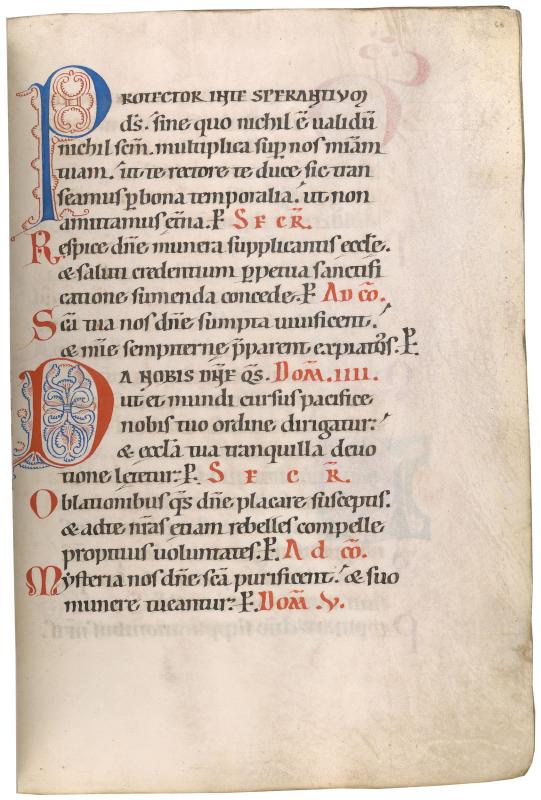 66
PROTECTOR IN TE SPERANTIVM
ds. sine quo nichil ē ualidū
nichil scm̄. multiplica sup̱ nos miām
tuam. ut te rectore te duce sic tran
seamus p̱ bona temporalia. ut non
amittamus etn̄a. P̱ S E C R̄.
Respice dn̄e munera supplicantis eccłe.
& saluti credentium p̱petua sanctifi
catione sumenda concede. P̱ AD CŌ.
Scā tua nos dn̄e sumpta uiuificent.
& mīe sempiterne p̄parent expiatos. P̱.
DA NOBIS DN̄E QS̄. DOM̄. IIII.
ut et mundi cursus pacifice
nobis tuo ordine dirigatur:
& eccła tua tranquilla deuo
tione letetur: P̱. S E C R̄.
Oblationibus qs̄ dn̄e placare susceptis.
& ad te nr̄as etiam rebelles compelle
propitius uoluntates. P̱. A d cō.
Mysteria nos dn̄e scā purificent. & suo
munere tueantur: P̱. Dom̄. V.